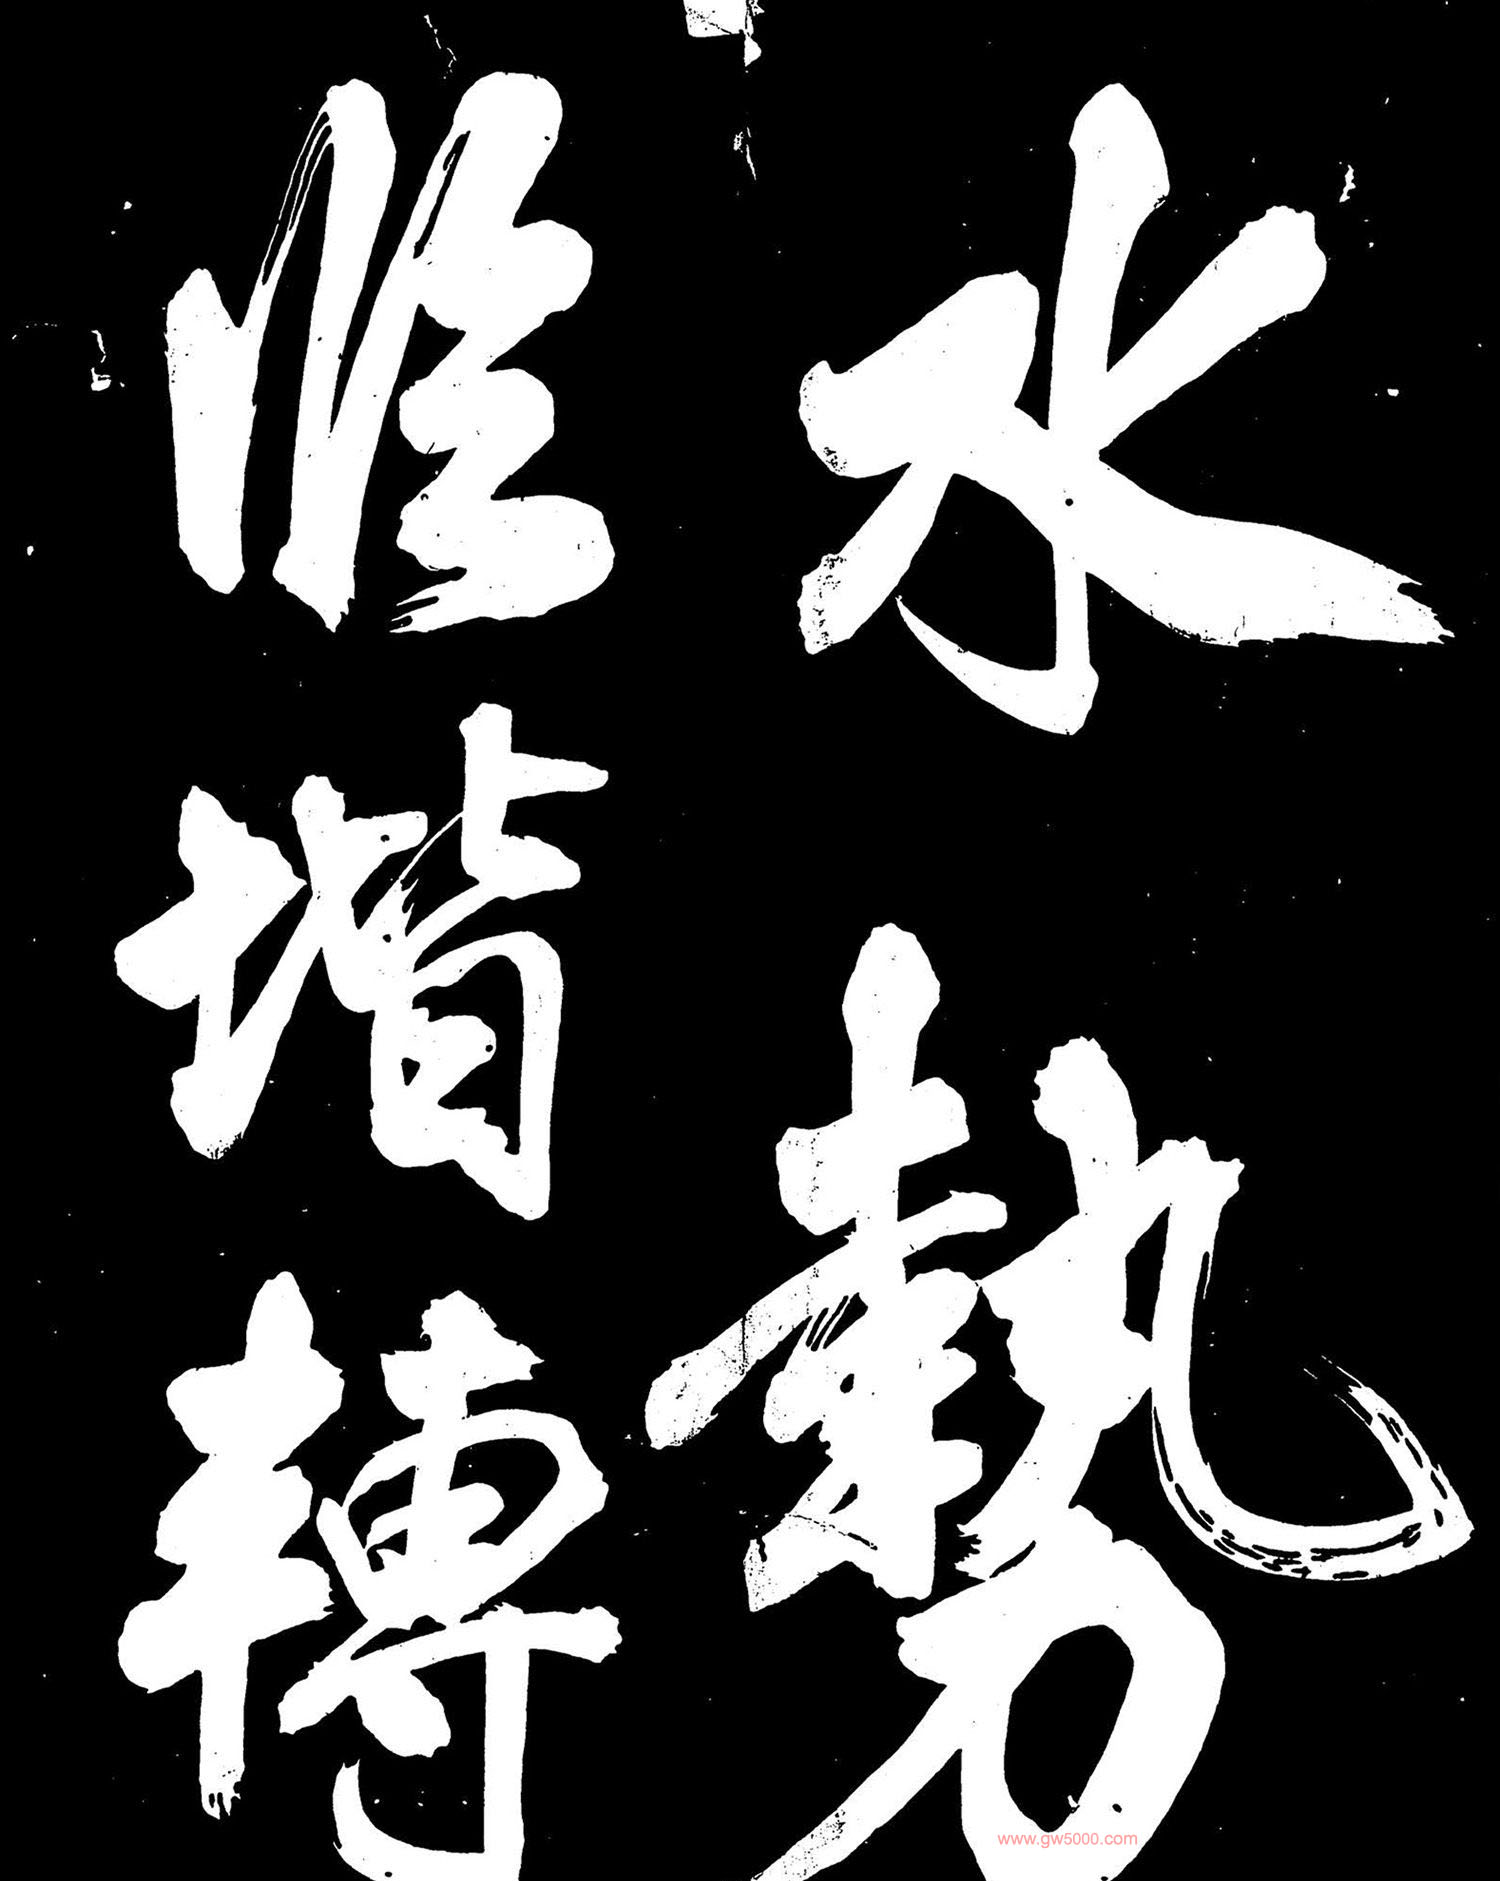 水勢
臨堦轉
www.gw5000.com